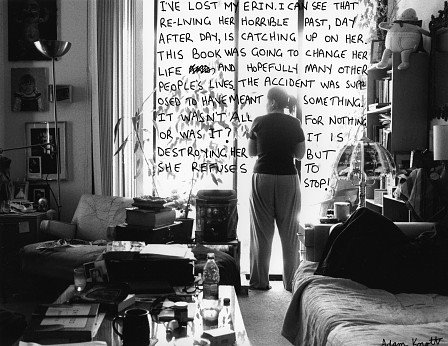 I'VE LOST MY ERIN. I CAN SEE THAT
RE-LIVING HER HORRIBLE PAST, DAY
AFTER DAY, IS CATCHING UP ON HER.
THIS BOOK WAS GOING TO CHANGE HER
LIFE AND HOPEFULLY MANY OTHER
PEOPLE'S LIVES. THE ACCIDENT WAS SUPP
OSED TO HAVE MEANT SOMETHING.
IT WASN'T ALL FOR NOTHING
OR WAS IT? IT IS
DESTROYING HER BUT
SHE REFUSES TO
STOP!
Adam Knott